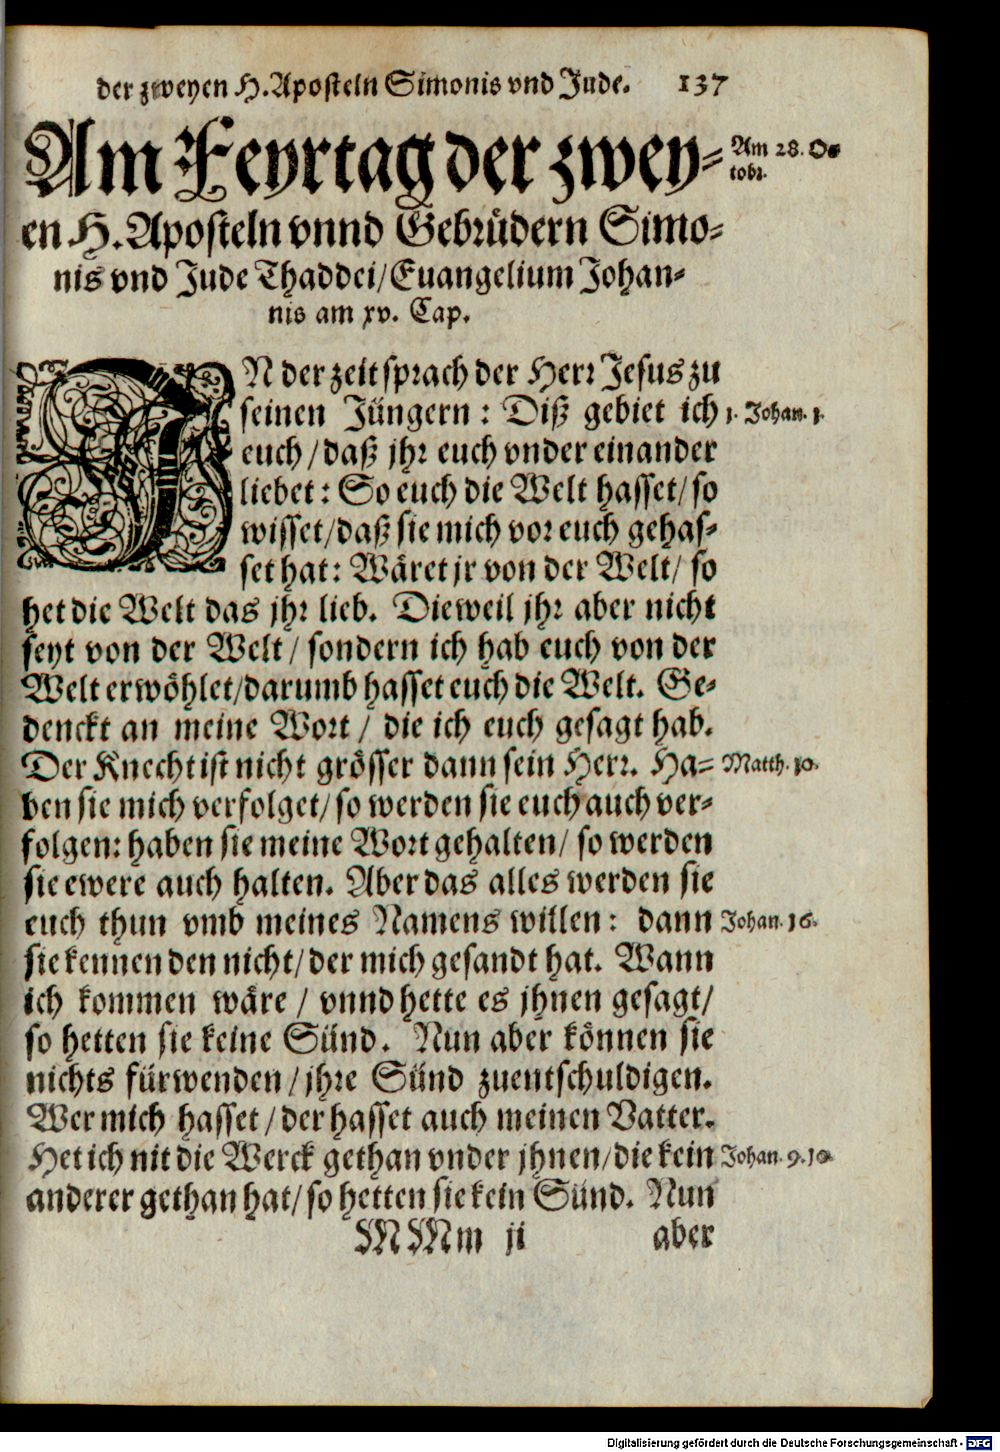 der zweyen H. Aposteln Simonis vnd Jude. 137
Am Feyrtag der zwey-
Am 28. Oc
tobr.
en H. Aposteln vnnd Gebrüdern Simo-
nis vnd Jude Thaddei/ Euangelium Johan-
nis am xv. Cap.
IN der zeit sprach der Herr Jesus zu
seinen Jüngern: Diß gebiet ich
1. Johan. 3.
euch/ daß jhr euch vnder einander
liebet: So euch die Welt hasset/ so
wisset/ daß sie mich vor euch gehas-
set hat: Wäret jr von der Welt/ so
het die Welt das jhr lieb. Dieweil jhr aber nicht
seyt von der Welt/ sondern ich hab euch von der
Welt erwöhlet/ darumb hasset euch die Welt. Ge-
denckt an meine Wort/ die ich euch gesagt hab.
Der Knecht ist nicht grösser dann sein Herr. Ha-
Matth. 10.
ben sie mich verfolget/ so werden sie euch auch ver-
folgen: haben sie meine Wort gehalten/ so werden
sie ewere auch halten. Aber das alles werden sie
euch thun vmb meines Namens willen: dann
Johan. 16.
sie kennen den nicht/ der mich gesandt hat. Wann
ich kommen wäre/ vnnd hette es jhnen gesagt/
so hetten sie keine Sünd. Nun aber können sie
nichts fürwenden/ jhre Sünd zuentschuldigen.
Wer mich hasset/ der hasset auch meinen Vatter.
Het ich nit die Werck gethan vnder jhnen/ die kein
Johan. 9. 10.
anderer gethan hat/ so hetten sie kein Sünd. Nun
MMm ij aber
Digitalisierung gefördert durch die Deutsche Forschungsgemeinschaft - DFG